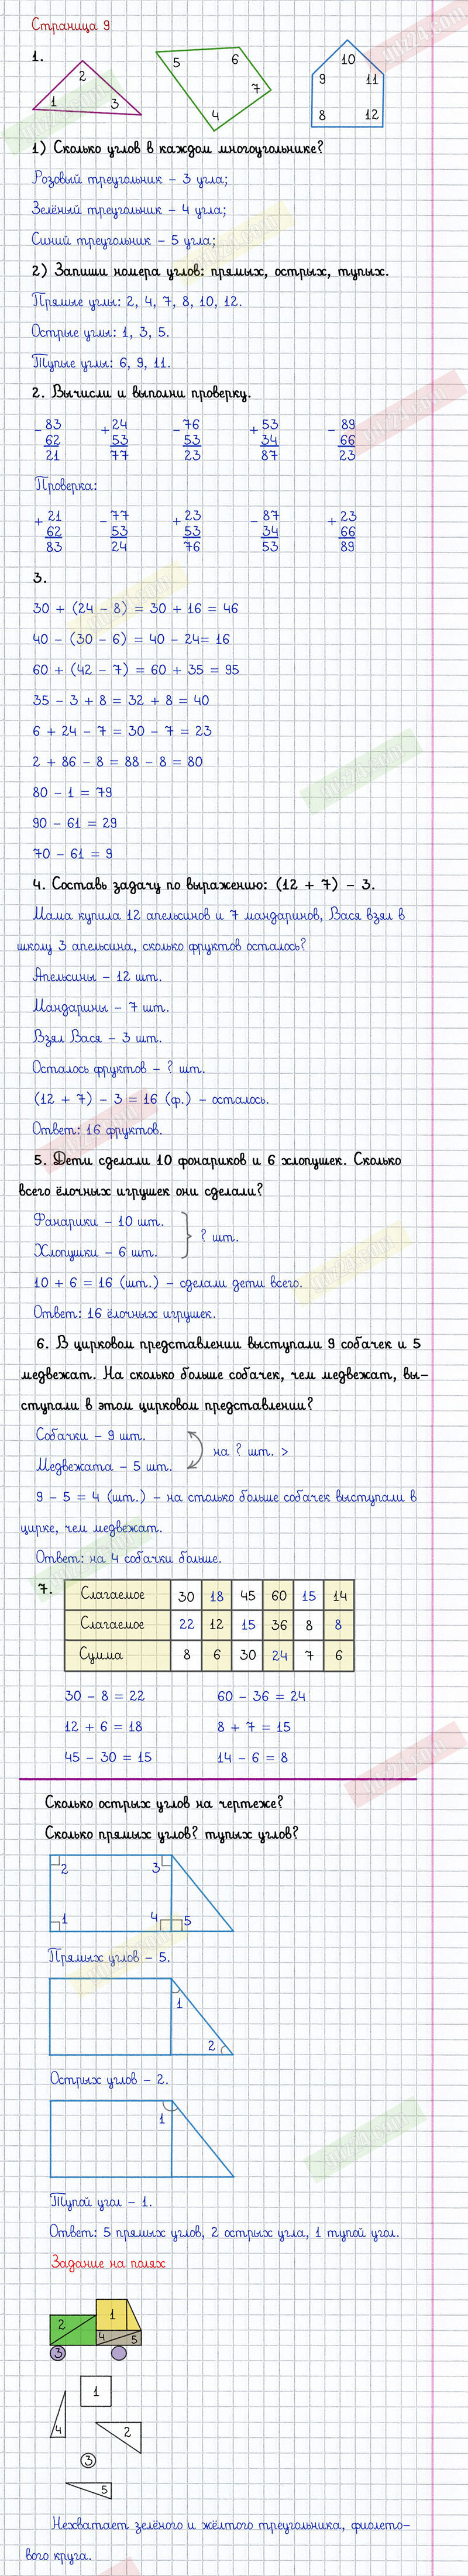 Страница 9
1.
1 2 3
5 6 7 4
9 10 11 8 12
1) Сколько углов в каждом многоугольнике?
Розовый треугольник – 3 угла;
Зелёный треугольник – 4 угла;
Синий треугольник – 5 угла;
2) Запиши номера углов: прямых, острых, тупых.
Прямые углы: 2, 4, 7, 8, 10, 12.
Острые углы: 1, 3, 5.
Тупые углы: 6, 9, 11.
2. Вычисли и выполни проверку.
– 83 + 24 – 76 + 53 – 89
62 53 53 34 66
21 77 23 87 23
Проверка:
+ 21 – 77 + 23 – 87 + 23
62 53 53 34 66
83 24 76 53 89
3.
30 + (24 – 8) = 30 + 16 = 46
40 – (30 – 6) = 40 – 24= 16
60 + (42 – 7) = 60 + 35 = 95
35 – 3 + 8 = 32 + 8 = 40
6 + 24 – 7 = 30 – 7 = 23
2 + 86 – 8 = 88 – 8 = 80
80 – 1 = 79
90 – 61 = 29
70 – 61 = 9
4. Составь задачу по выражению: (12 + 7) – 3.
Мама купила 12 апельсинов и 7 мандаринов, Вася взял в
школу 3 апельсина, сколько фруктов осталось?
Апельсины – 12 шт.
Мандарины – 7 шт.
Взял Вася – 3 шт.
Осталось фруктов – ? шт.
(12 + 7) – 3 = 16 (ф.) – осталось.
Ответ: 16 фруктов.
5. Дети сделали 10 фонариков и 6 хлопушек. Сколько
всего ёлочных игрушек они сделали?
Фанарики – 10 шт.
? шт.
Хлопушки – 6 шт.
10 + 6 = 16 (шт.) – сделали дети всего.
Ответ: 16 ёлочных игрушек.
6. В цирковом представлении выступали 9 собачек и 5
медвежат. На сколько больше собачек, чем медвежат, вы–
ступали в этом цирковом представлении?
Собачки – 9 шт.
на ? шт. >
Медвежата – 5 шт.
9 – 5 = 4 (шт.) – на столько больше собачек выступали в
цирке, чем медвежат.
Ответ: на 4 собачки больше.
7. Слагаемое 30 18 45 60 15 14
Слагаемое 22 12 15 36 8 8
Сумма 8 6 30 24 7 6
30 – 8 = 22 60 – 36 = 24
12 + 6 = 18 8 + 7 = 15
45 – 30 = 15 14 – 6 = 8
Сколько острых углов на чертеже?
Сколько прямых углов? тупых углов?
2 3
1 4 5
Прямых углов – 5.
1
2
Острых углов – 2.
1
Тупой угол – 1.
Ответ: 5 прямых углов, 2 острых угла, 1 тупой угол.
Задание на полях
1
2
4 5
3
1
4
2
3
5
Нехватает зелёного и жёлтого треугольника, фиолето–
вого круга.